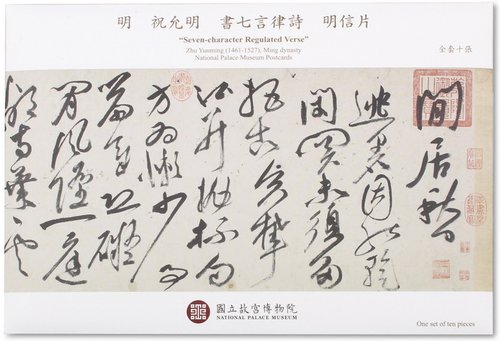 明 祝允明 書七言律詩 明信片
"Seven-character Regulated Verse"
Zhu Yunming (1461-1527), Ming dynasty
National Palace Museum Postcards
全套十張
閒居秋日
逃暑因能暫
閉關未須多
把古賢攀
并拋杯勺
方為懶少事
篇章恐礙
閒風墮一庭
鄰寺葉雲
國立故宮博物院
NATIONAL PALACE MUSEUM
One set of ten pieces